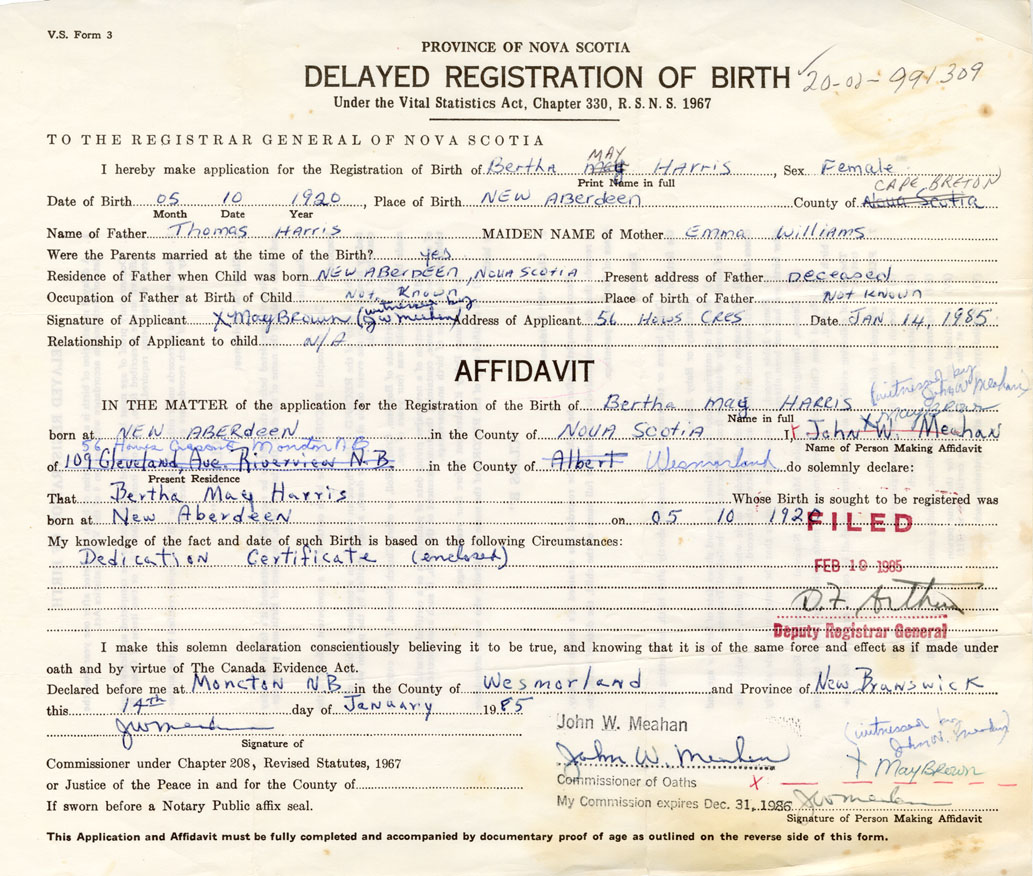 V.S. Form 3
PROVINCE OF NOVA SCOTIA
DELAYED REGISTRATION OF BIRTH
20-02-991309
Under the Vital Statistics Act, Chapter 330, R.S.N.S. 1967
TO THE REGISTRAR GENERAL OF NOVA SCOTIA
MAY
I hereby make application for the Registration of Birth of Bertha May HARRIS, Sex Female
Print Name in full
CAPE BRETON
Date of Birth 05 10 1920, Place of Birth NEW ABerdeen County of Nova Scotia
Month Date Year
Name of Father Thomas HArris MAIDEN NAME of Mother Emma Williams
Were the Parents married at the time of the Birth? yes
Residence of Father when Child was born NEW ABerDEEN, NOVA SCOTIA Present address of Father Deceased
Occupation of Father at Birth of Child Not Known Place of birth of Father Not Known
Signature of Applicant X May Brown (witnessed by JW Meahan) Address of Applicant 56 Hows CRES Date JAN 14, 1985
Relationship of Applicant to child N/A
AFFIDAVIT
(witnessed by John Meahan)
IN THE MATTER of the application for the Registration of the Birth of Bertha May HARRIS
Name in full
X May Brown
born at NEW ABERDEEN in the County of NOVA SCOTIA I, John W. Meahan
Name of Person Making Affidavit
56 Hows Crescent Moncton N.B
of 109 Cleveland, Ave. Riverview N.B. in the County of Albert Wesmorland do solemnly declare:
Present Residence
That Bertha May Harris Whose Birth is sought to be registered was
born at New Aberdeen on 05 10 1920
FILED
My knowledge of the fact and date of such Birth is based on the following Circumstances:
Dedication Certificate (enclosed)
FEB 19 1985
D.F. Arthur
Deputy Registrar General
I make this solemn declaration conscientiously believing it to be true, and knowing that it is of the same force and effect as if made under
oath and by virtue of The Canada Evidence Act.
Declared before me at Moncton NB in the County of Wesmorland and Province of New Brunswick
this 14th day of January 1985
JW Meahan
Signature of
Commissioner under Chapter 208, Revised Statutes, 1967
or Justice of the Peace in and for the County of
If sworn before a Notary Public affix seal.
John W. Meahan
John W. Meahan
Commissioner of Oaths
My Commission expires Dec. 31, 1986
(witnessed by John W. Meahan)
X May Brown
JW Meahan
Signature of Person Making Affidavit
This Application and Affidavit must be fully completed and accompanied by documentary proof of age as outlined on the reverse side of this form.